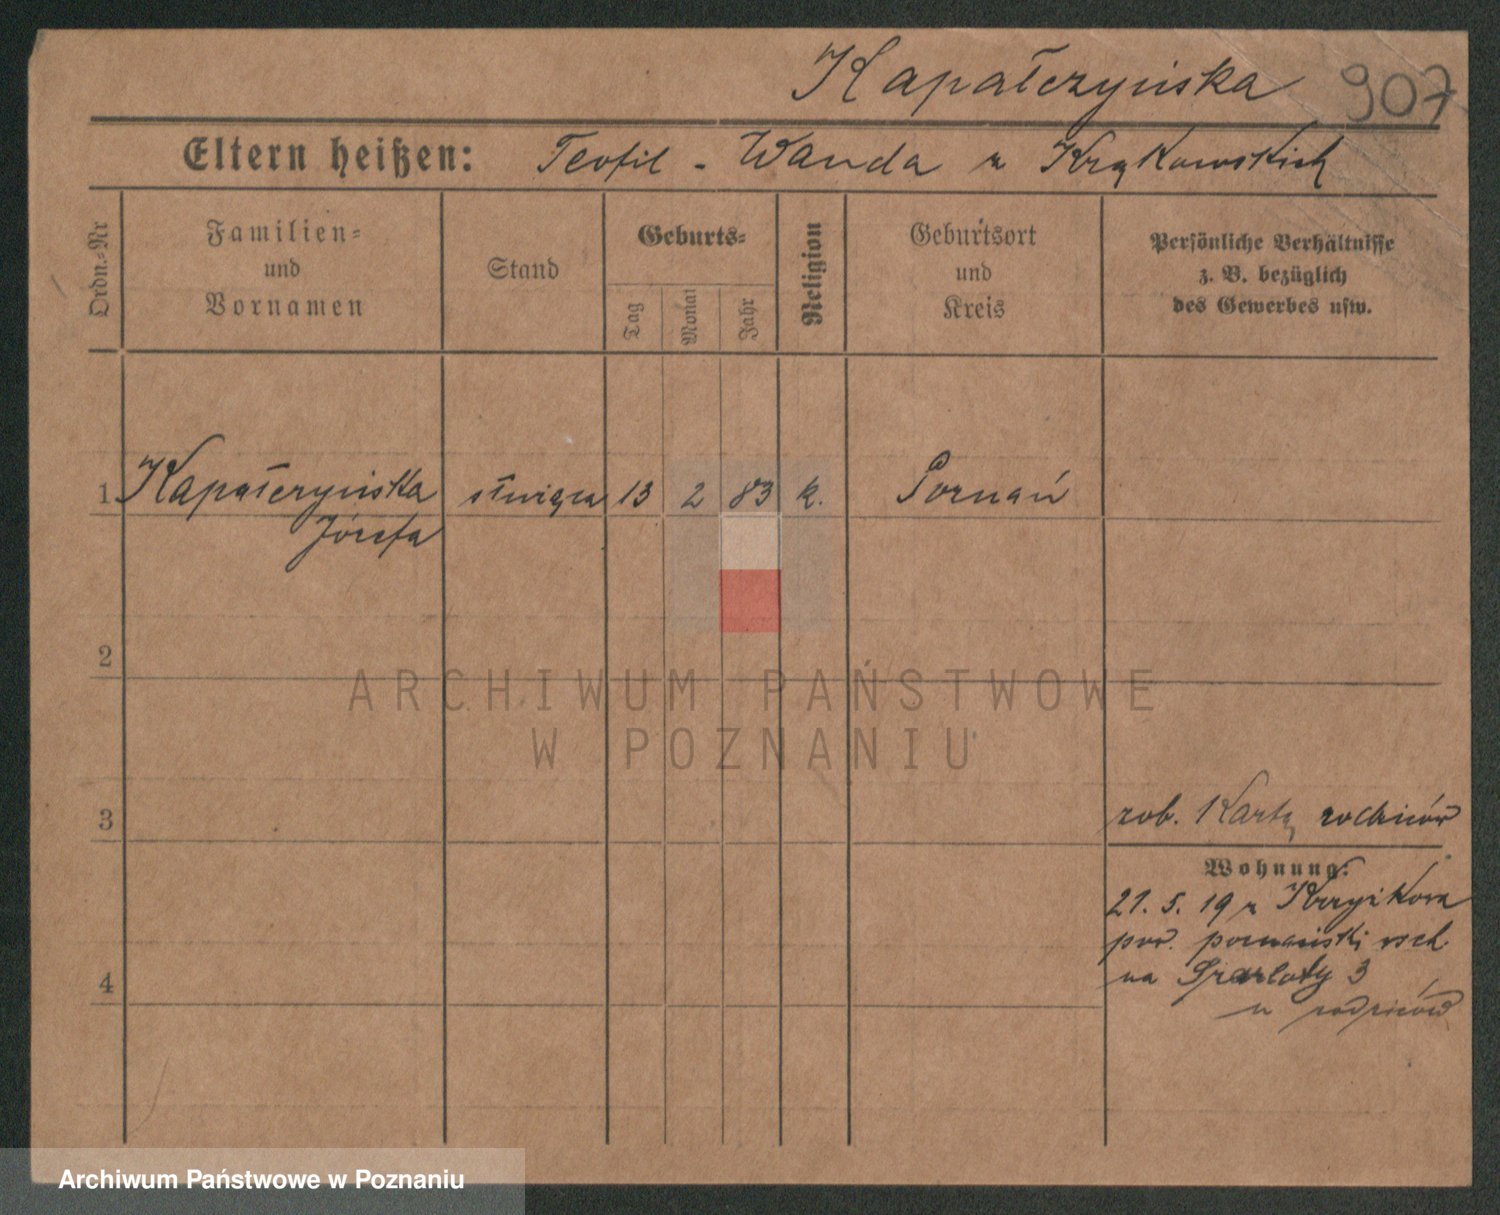 Kapałczyńska 907
Eltern heißen: Teofil - Wanda z Krąkowskich
Ordn.-Nr
Familien-
und
Vornamen
Stand
Geburts-
Tag
Monat
Jahr
Religion
Geburtsort
und
Kreis
Persönliche Verhältnisse
z. B. bezüglich
des Gewerbes usw.
1 Kapałczyńska służąca 13 2 83 k. Poznań
Józefa
2
3
zob. Kartę rodziców
Wohnung:
21. 5. 19 z
pow. poznański wsch.
4
na 3
u rodziców
ARCHIWUM PAŃSTWOWE
W POZNANIU
Archiwum Państwowe w Poznaniu